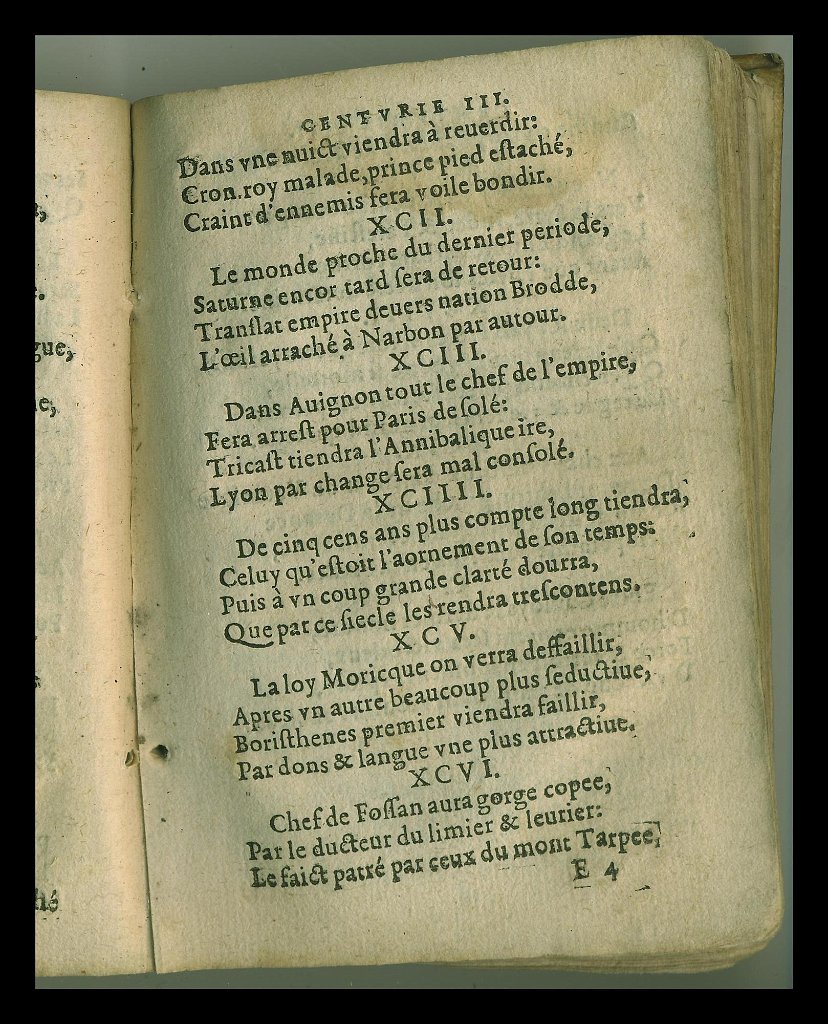 ue,
hé
CENTVRIE III.
Dans vne nuict viendra à reuerdir:
Cron.roy malade,prince pied eſtaché,
Craint d'ennemis fera voile bondir.
XCII.
Le monde proche du dernier periode,
Saturne encor tard ſera de retour:
Tranſlat empire deuers nation Brodde,
L'œil arraché à Narbon par autour.
XCIII.
Dans Auignon tout le chef de l'empire,
Fera arreſt pour Paris deſolé:
Tricaſt tiendra l'Annibalique ire,
Lyon par change ſera mal conſolé.
XCIIII.
De cinq cens ans plus compte long tiendra,
Celuy qu'eſtoit l'aornement de ſon temps:
Puis à vn coup grande clarté dourra,
Que par ce ſiecle les rendra treſcontens.
XCV.
La loy Moricque on verra deffaillir,
Apres vn autre beaucoup plus ſeductiue,
Boriſthenes premier viendra faillir,
Par dons & langue vne plus attractiue.
XCVI.
Chef de Foſſan aura gorge copee,
Par le ducteur du limier & leurier:
Le faict patré par ceux du mont Tarpee,
E 4